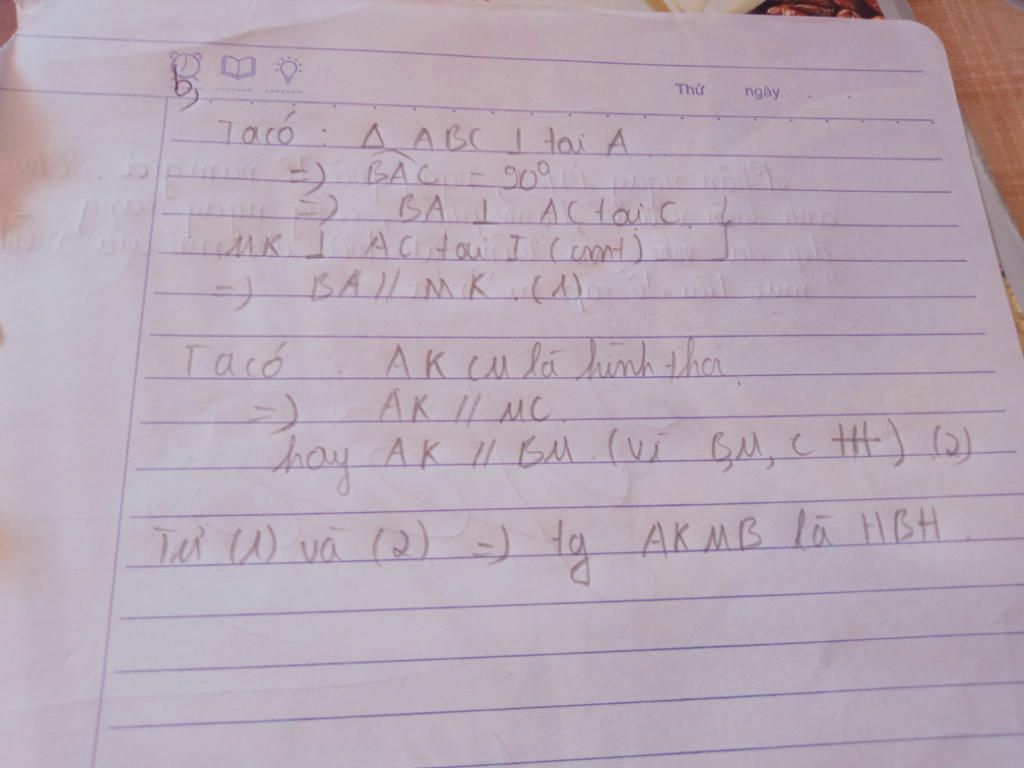 Thứ ngày
B,
Ta có : Δ ABC ⊥ tại A
=) BAC = 90⁰
=) BA ⊥ AC tại C. }
MK ⊥ AC tại I (cmt)
=) BA // MK . (1)
Ta có AKCM là hình thoi
=) AK // MC
hay AK // BM (vì B,M, C TH) (2)
Từ (1) và (2) =) tg AKMB là HBH.